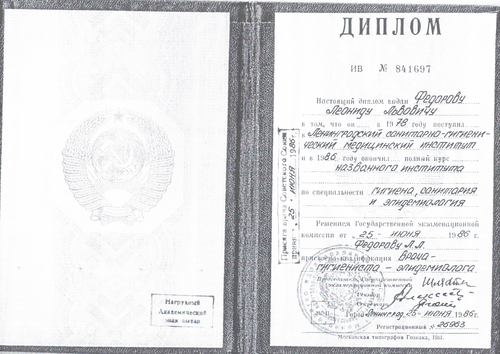 Нагрудный
Академический
знак выдан
Присяга врача Советского Союза
принята 25 - ИЮНЯ 1986 г.
ДИПЛОМ
ИВ № 841697
Настоящий диплом выдан Федорову
Леониду Львовичу
в том, что он в 1978 году поступил
в Ленинградский санитарно-гигиени-
ческий медицинский институт
и в 1986 году окончил полный курс
названного института
по специальности гигиена, санитария
и эпидемиология
Решением Государственной экзаменационной
комиссии от 25 - июня 1986 г.
Федорову Л.Л.
присвоена квалификация врача-
гигиениста - эпидемиолога
Председатель Государственной
экзаменационной комиссии
Ректор
Город Ленинград, 25 - июня 1986 г.
Регистрационный № 26963
Московская типография Гознака,